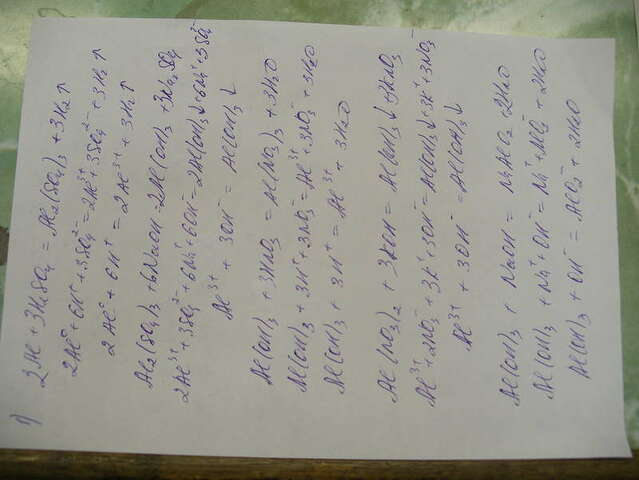 1)
2Al + 3H₂SO₄ = Al₂(SO₄)₃ + 3H₂↑
2Al⁰ + 6H⁺ + 3SO₄²⁻ = 2Al³⁺ + 3SO₄²⁻ + 3H₂↑
2Al⁰ + 6H⁺ = 2Al³⁺ + 3H₂↑
Al₂(SO₄)₃ + 6NaOH = 2Al(OH)₃ + 3Na₂SO₄
2Al³⁺ + 3SO₄²⁻ + 6Na⁺ + 6OH⁻ = 2Al(OH)₃↓ + 6Na⁺ + 3SO₄²⁻
Al³⁺ + 3OH⁻ = Al(OH)₃↓
Al(OH)₃ + 3HNO₃ = Al(NO₃)₃ + 3H₂O
Al(OH)₃ + 3H⁺ + 3NO₃⁻ = Al³⁺ + 3NO₃⁻ + 3H₂O
Al(OH)₃ + 3H⁺ = Al³⁺ + 3H₂O
Al(NO₃)₂ + 3KOH = Al(OH)₃↓ + 3KNO₃
Al³⁺ + 2NO₃⁻ + 3K⁺ + 3OH⁻ = Al(OH)₃↓ + 3K⁺ + 3NO₃⁻
Al³⁺ + 3OH⁻ = Al(OH)₃↓
Al(OH)₃ + NaOH = NaAlO₂ + 2H₂O
Al(OH)₃ + Na⁺ + OH⁻ = Na⁺ + AlO₂⁻ + 2H₂O
Al(OH)₃ + OH⁻ = AlO₂⁻ + 2H₂O